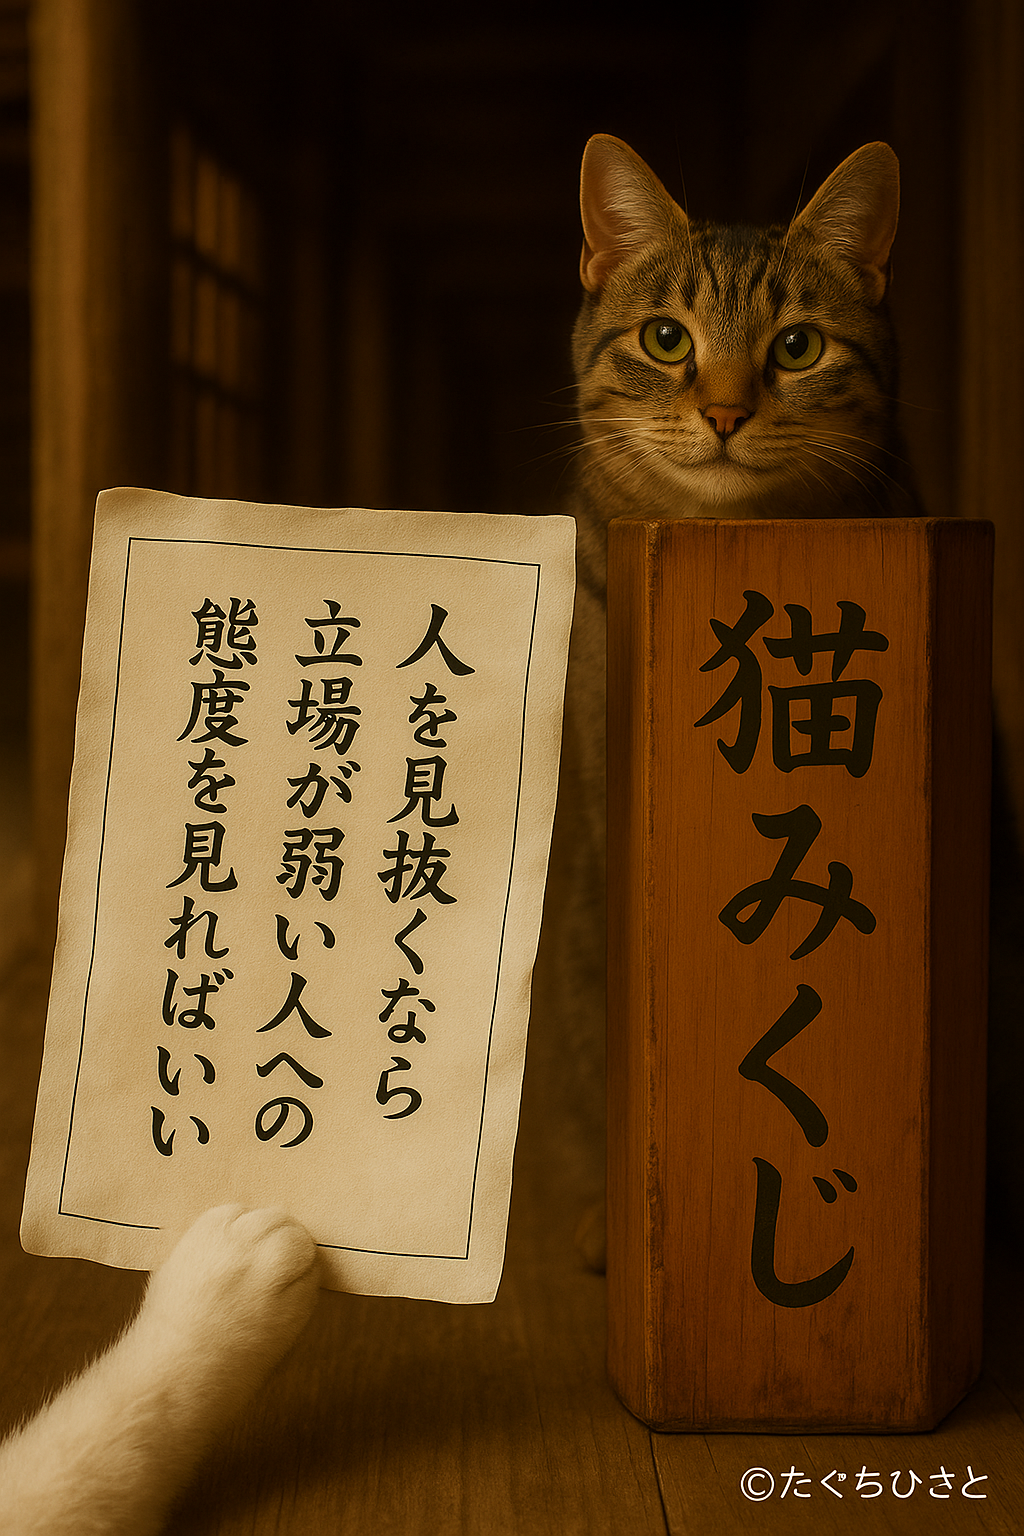 人を見抜くなら
立場が弱い人への
態度を見ればいい
猫みくじ
©たぐちひさと